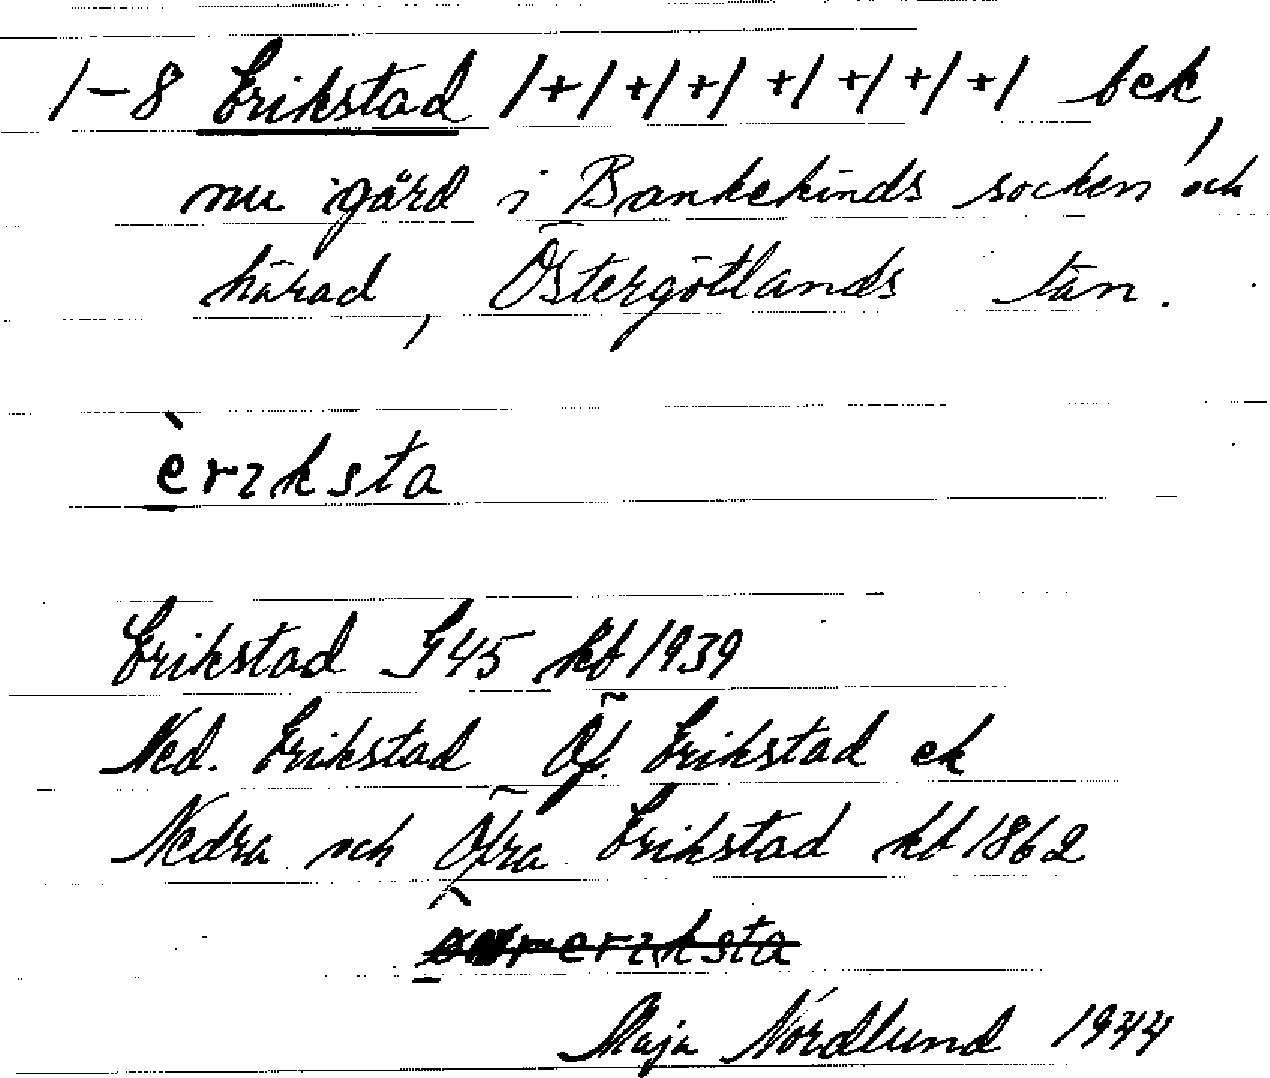 1-8 Erikstad 1+1+1+1+1+1+1+1 bek,
nu i gård i Bankekinds socken och
härad, Östergötlands län.
èrıksta
Erikstad G45 kb 1939
Ned. Erikstad Öf. Erikstad ek
Nedra och Öfra Erikstad kb 1862
erıksta
Maja Nordlund 1944